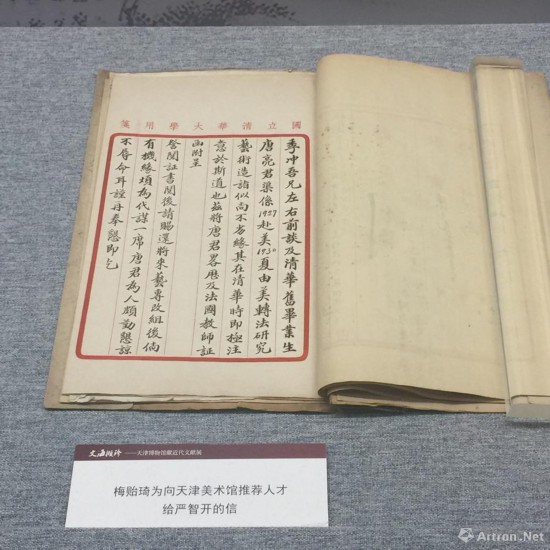 國立清華大學用箋
季冲吾兄左右前談及清華舊畢業生
唐亮君梁係1927赴美1930夏由美轉法研究
藝術造詣似尚不劣緣其在清華時即極注
意於斯道也茲將唐君畧歷及法國教師証
函附呈
詧閱証書閱後請賜還將來藝專改組後倘
有機緣頃為代謀一席唐君為人頗勤懇諒
不辱命耳謹再奉懇即乞
文海撷珍 ——天津博物馆藏近代文献展
梅贻琦为向天津美术馆推荐人才
给严智开的信
Artron.Net